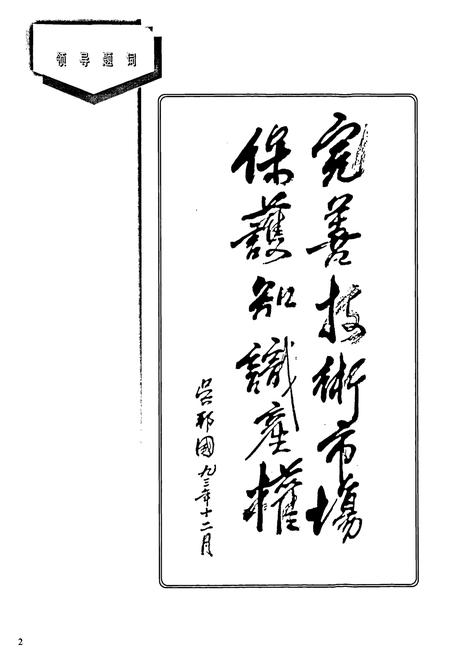 领导题词
完善技術市場
保護知識產權
吴邦國 九三年十二月
2